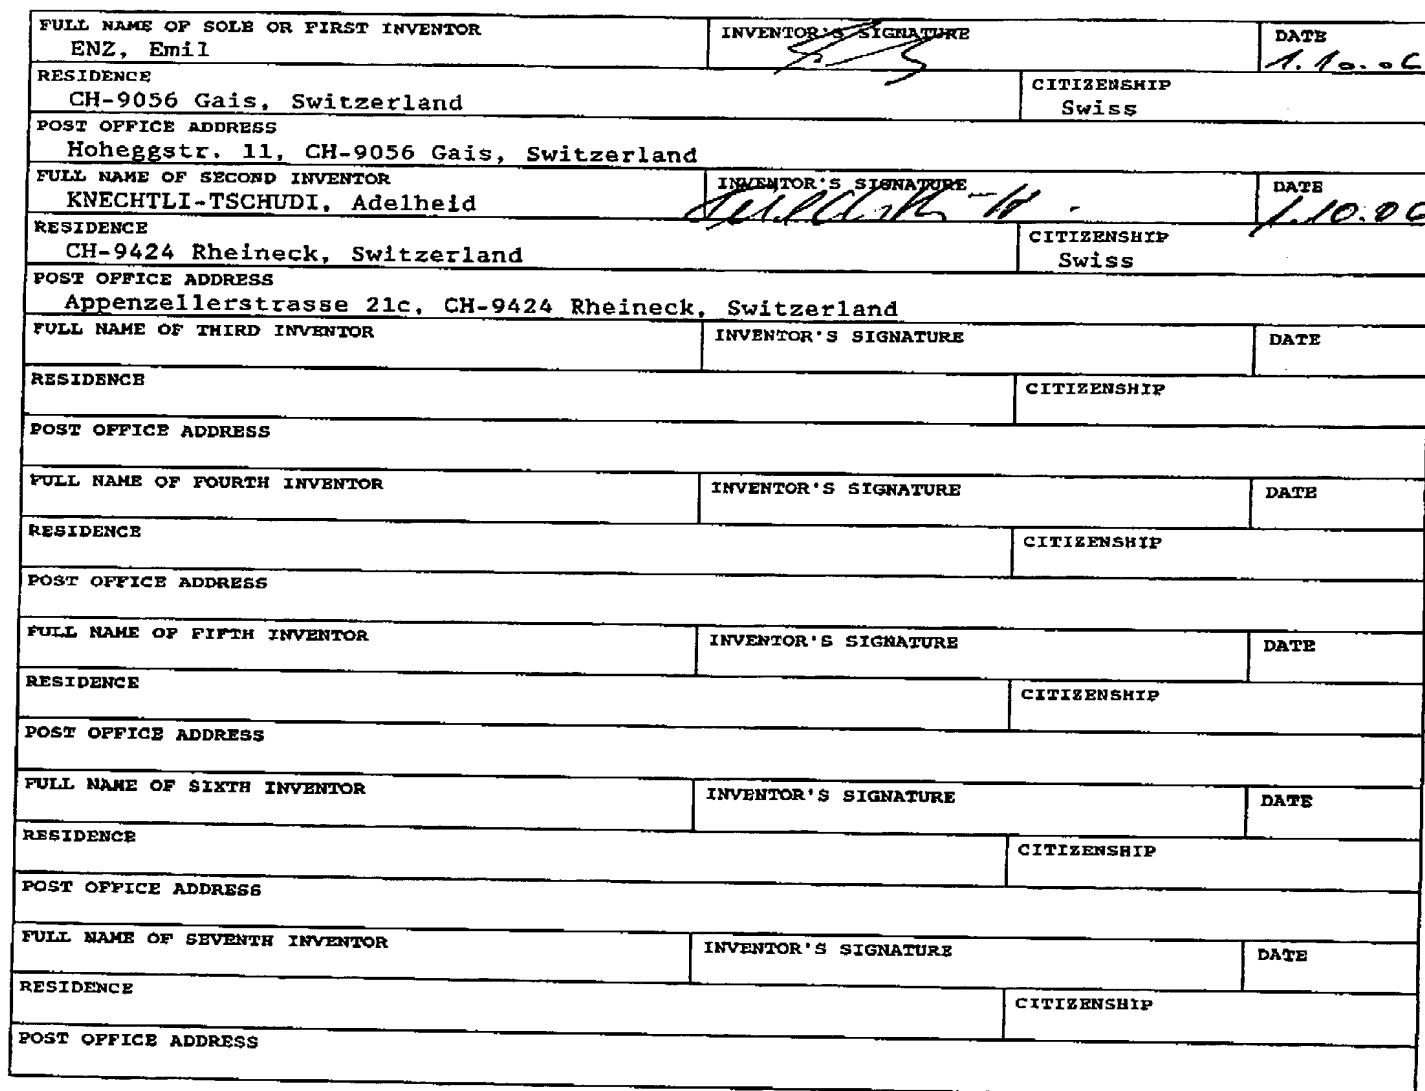 FULL NAME OF SOLE OR FIRST INVENTOR INVENTOR'S SIGNATURE DATE
ENZ, Emil 1.10.06
RESIDENCE CITIZENSHIP
CH-9056 Gais, Switzerland Swiss
POST OFFICE ADDRESS
Hoheggstr. 11, CH-9056 Gais, Switzerland
FULL NAME OF SECOND INVENTOR INVENTOR'S SIGNATURE DATE
KNECHTLI-TSCHUDI, Adelheid 1.10.06
RESIDENCE CITIZENSHIP
CH-9424 Rheineck, Switzerland Swiss
POST OFFICE ADDRESS
Appenzellerstrasse 21c, CH-9424 Rheineck, Switzerland
FULL NAME OF THIRD INVENTOR INVENTOR'S SIGNATURE DATE
RESIDENCE CITIZENSHIP
POST OFFICE ADDRESS
FULL NAME OF FOURTH INVENTOR INVENTOR'S SIGNATURE DATE
RESIDENCE CITIZENSHIP
POST OFFICE ADDRESS
FULL NAME OF FIFTH INVENTOR INVENTOR'S SIGNATURE DATE
RESIDENCE CITIZENSHIP
POST OFFICE ADDRESS
FULL NAME OF SIXTH INVENTOR INVENTOR'S SIGNATURE DATE
RESIDENCE CITIZENSHIP
POST OFFICE ADDRESS
FULL NAME OF SEVENTH INVENTOR INVENTOR'S SIGNATURE DATE
RESIDENCE CITIZENSHIP
POST OFFICE ADDRESS